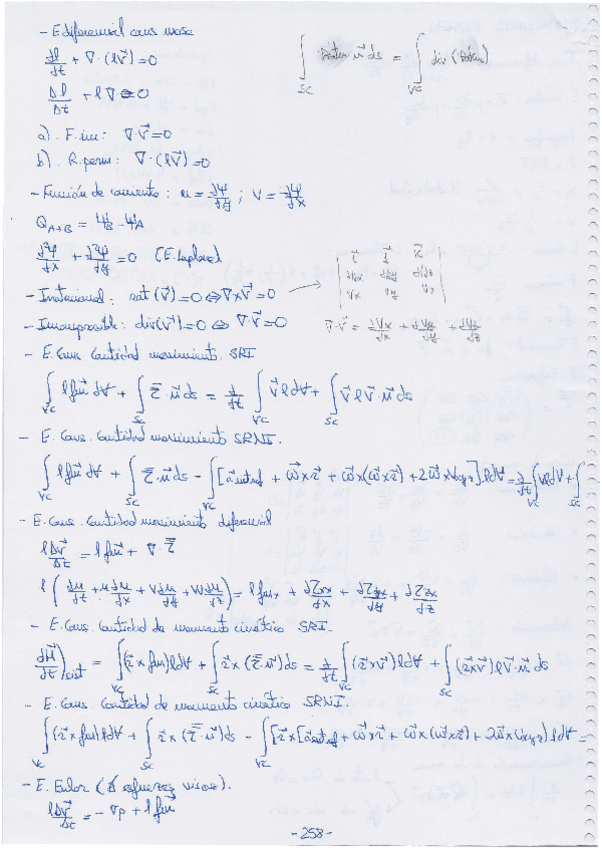 - E diferencial cons masa
∂ρ/∂t + ∇·(ρv⃗)=0
∫SC n⃗ ds = ∫VC div ( )
Δρ/Δt + ρ∇ =0
a). F. inc: ∇·v⃗=0
b). R. perm: ∇·(ρv⃗)=0
- Función de corriente: u = ∂Ψ/∂y ; V = -∂Ψ/∂x
QA→B = ΨB - ΨA
∂²Ψ/∂x + ∂²Ψ/∂y =0 (E. Laplace)
- Irrotacional: rot(v⃗)=0 ⇔ ∇x v⃗=0
- Incompresible: div(v⃗)=0 ⇔ ∇·v⃗=0
∇·v⃗ = ∂Vx/∂x + ∂Vy/∂y + ∂Vz/∂z
- E. Cons Cantidad movimiento. SRI
∫VC ρf⃗m dV + ∫SC τ̿·n⃗ ds = ∂/∂t ∫VC v⃗ρdV + ∫SC v⃗ρv⃗·n⃗ ds
- E. Cons. Cantidad movimiento SRNI.
∫VC ρf⃗m dV + ∫SC τ̿·n⃗ ds - ∫VC [a⃗ + ω⃗xr⃗ + ω⃗x(ω⃗xr⃗) + 2ω⃗xVxyz]ρdV = ∂/∂t ∫VC VρdV + ∫SC
- E. Cons. Cantidad movimiento diferencial
ρΔv⃗/Δt = ρf⃗m + ∇·τ̿
ρ(∂u/∂t + u∂u/∂x + V∂u/∂y + W∂u/∂z) = ρfmx + ∂τxx/∂x + ∂τyx/∂y + ∂τzx/∂z
- E. Cons. Cantidad de momento cinético SRI.
∂M⃗/∂t)sist = ∫VC (r⃗xfm)ρdV + ∫SC r⃗x(τ̿·n⃗)ds = ∂/∂t ∫VC (r⃗xv⃗)ρdV + ∫SC (r⃗xv⃗)ρv⃗·n⃗ ds
- E. Cons. Cantidad de momento cinético SRNI.
∫VC (r⃗xfm)ρdV + ∫SC r⃗x(τ̿·n⃗)ds - ∫VC [r⃗x[a⃗ + ω⃗xr⃗ + ω⃗x(ω⃗xr⃗) + 2ω⃗xVxyz]ρdV =
- E. Euler (∄ esfuerzos viscosos).
ρΔv⃗/Δt = -∇p + ρf⃗m
- 258 -